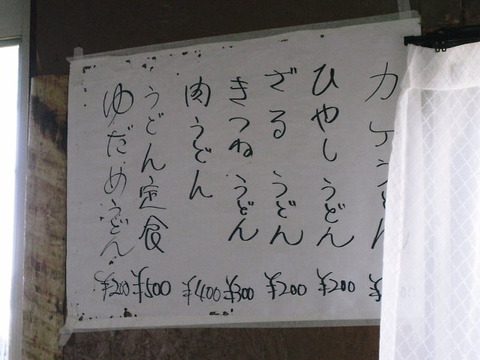 カケうどん ¥
ひやしうどん ¥200
ざるうどん ¥200
きつねうどん ¥300
肉うどん ¥400
うどん定食 ¥500
ゆだめうどん ¥200